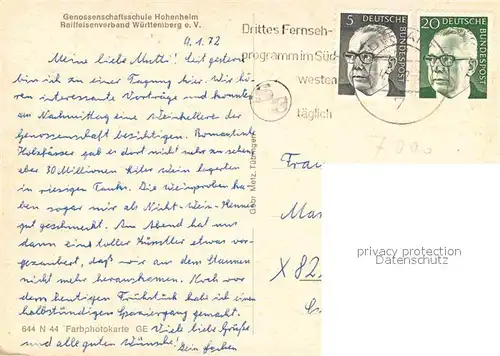 Genossenschaftsschule Hohenheim
Raiffeisenverband Württemberg e. V.
9.1.72
Meine liebe Mutti! Seit gestern
bin ich zu einer Tagung hier. Wir hö-
ren interessante Vorträge und konnten
am Nachmittag eine Weinkellerei der
Genossenschaft besichtigen. Romantische
Holzfässer gab es dort nicht mehr zu sehen
aber 30 Millionen Liter Wein lagerten
in riesigen Tanks. Die Weinproben ha-
ben sogar mir als Nicht-Wein-Kenner
gut geschmeckt. Am Abend hat uns
dann ein toller Künstler etwas vor-
gezaubert, daß wir aus dem Staunen
nicht mehr herauskamen. Noch vor
dem heutigen Frühstück habe ich einen
halbstündigen Spaziergang gemacht.
Viele liebe Grüße
und alle guten Wünsche! Dein
644 N 44 Farbphotokarte GE
Gebr. Metz, Tübingen
Drittes Fernseh-
programm im Süd-
westen
täglich
5
DEUTSCHE
BUNDESPOST
20
DEUTSCHE
BUNDESPOST
7
7000
Frau
X 82
privacy protection
Datenschutz